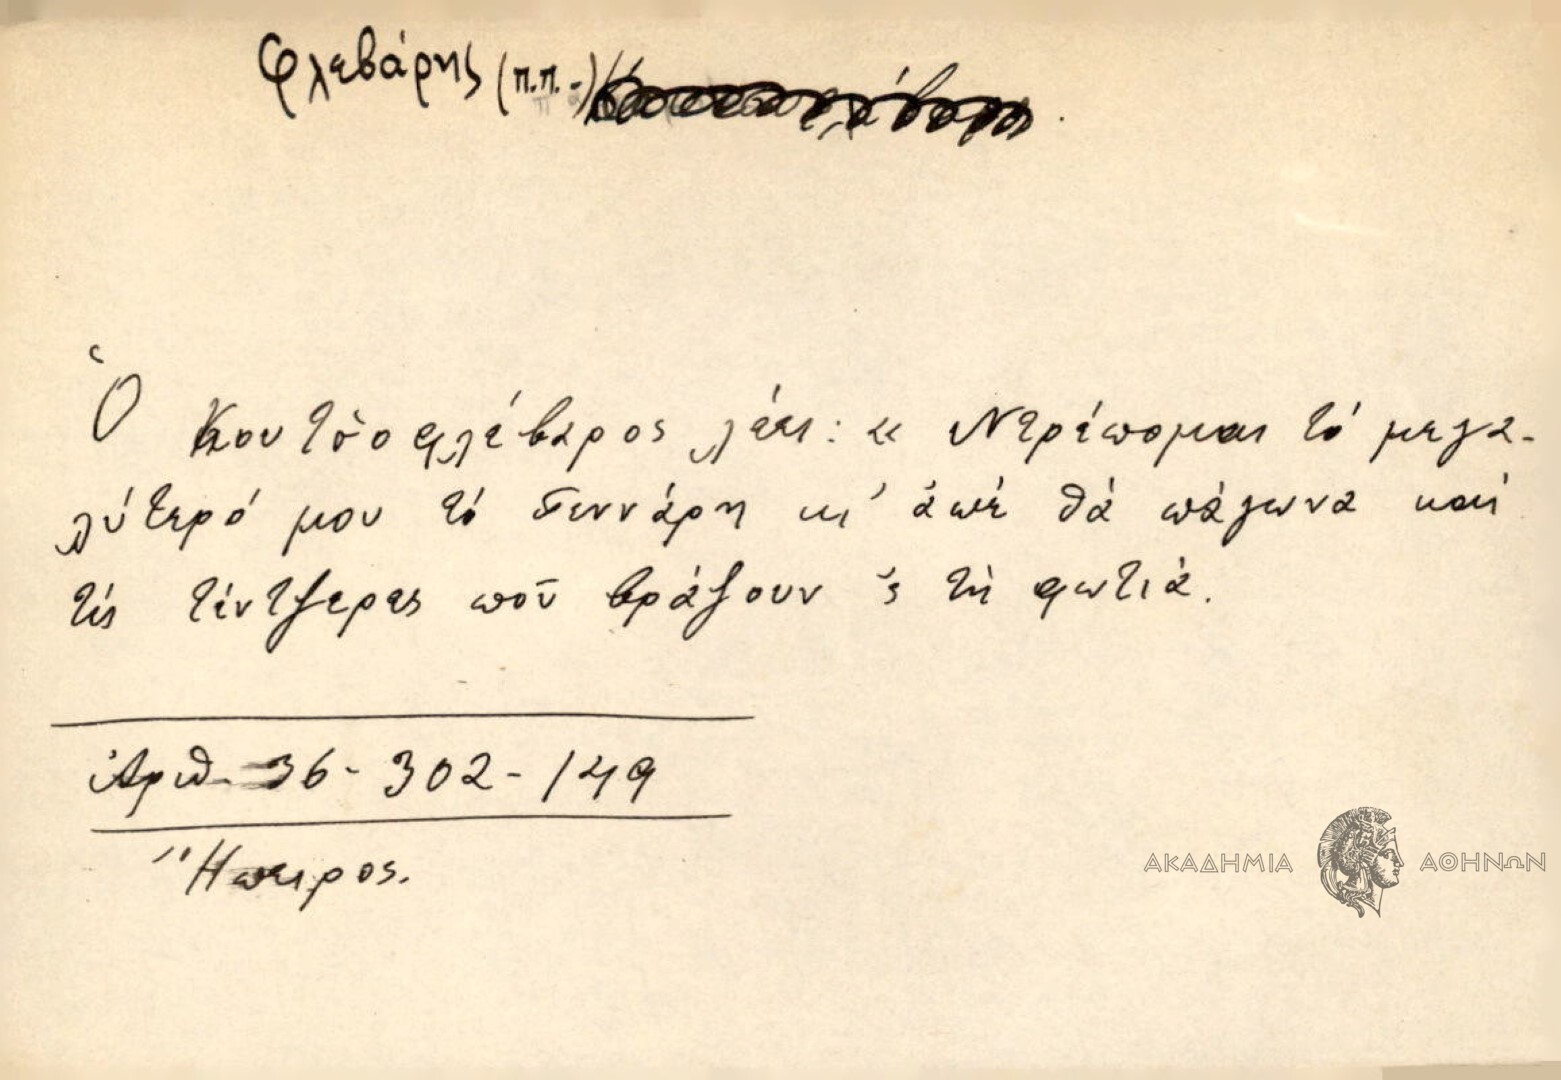 Φλεβάρης (π.π.-)
Ὁ Κουτσοφλέβαρος λέει: « Ντρέπομαι τό μεγα-
λύτερό μου τό Γεννάρη κι' ἀπέ θά πάγωνα καί
τίς τέντζερες πού βράζουν 'ς τή φωτιά.
Ἀριθ. 36 - 302 - 149
Ἤπειρος.
ΑΚΑΔΗΜΙΑ ΑΘΗΝΩΝ